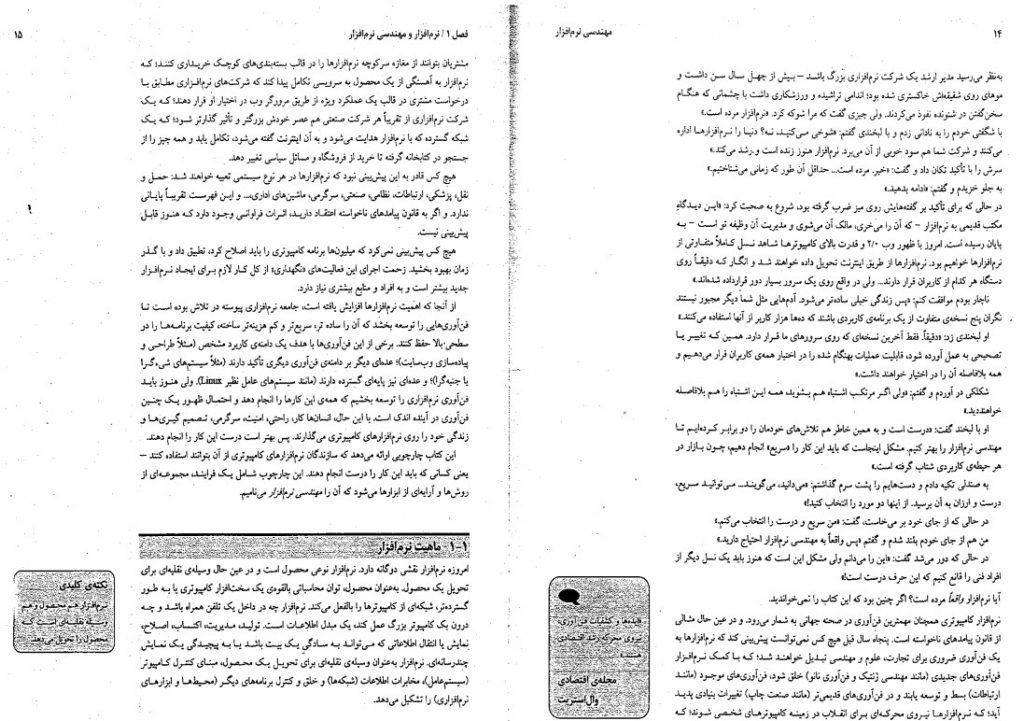 ۱۴
مهندسی نرم‌افزار
به‌نظر می‌رسید مدیر ارشد یک شرکت نرم‌افزاری بزرگ باشد – بیش از چهل سال سن داشت و
موهای روی شقیقه‌اش خاکستری شده بود؛ اندامی تراشیده و ورزشکاری داشت با چشمانی که هنگام
سخن‌گفتن در شنونده نفوذ می‌کردند. ولی چیزی گفت که مرا شوکه کرد. «نرم‌افزار مرده است.»
با شگفتی خودم را به نادانی زدم و با لبخندی گفتم: «شوخی می‌کنید، نه؟ دنیا را نرم‌افزارها اداره
می‌کنند و شرکت شما هم سود خوبی از آن می‌برد. نرم‌افزار هنوز زنده است و رشد می‌کند.»
سرش را با تأکید تکان داد و گفت: «خیر. مرده است... حداقل آن طور که زمانی می‌شناختیم.»
به جلو خزیدم و گفتم: «ادامه بدهید.»
در حالی که برای تأکید بر گفته‌هایش روی میز ضرب گرفته بود، شروع به صحبت کرد: «این دیدگاه
مکتب قدیمی به نرم‌افزار – که آن را می‌خری، مالک آن می‌شوی و مدیریت آن وظیفه تو است – به
پایان رسیده است. امروز با ظهور وب ۲/۰ و قدرت بالای کامپیوترها شاهد نسل کاملاً متفاوتی از
نرم‌افزارها خواهیم بود. نرم‌افزارها از طریق اینترنت تحویل داده خواهند شد و انگار که دقیقاً روی
دستگاه هر کدام از کاربران قرار دارند... ولی در واقع روی یک سرور بسیار دور قرارداده شده‌اند.»
ناچار بودم موافقت کنم: «پس زندگی خیلی ساده‌تر می‌شود. آدم‌هایی مثل شما دیگر مجبور نیستند
نگران پنج نسخه‌ی متفاوت از یک برنامه‌ی کاربردی باشند که ده‌ها هزار کاربر از آنها استفاده می‌کنند.»
او لبخندی زد: «دقیقاً. فقط آخرین نسخه‌ای که روی سرورهای ما قرار دارد. همین که تغییر یا
تصحیحی به عمل آورده شود، قابلیت عملیات بهنگام شده را در اختیار همه‌ی کاربران قرار می‌دهیم و
همه بلافاصله آن را در اختیار خواهند داشت.»
شکلکی در آوردم و گفتم: «ولی اگر مرتکب اشتباه هم بشوید، همه این اشتباه را هم بلافاصله
خواهنددید.»
او با لبخند گفت: «درست است و به همین خاطر هم تلاش‌های خودمان را دو برابر کرده‌ایم تا
مهندسی نرم‌افزار را بهتر کنیم. مشکل اینجاست که باید این کار را «سریع» انجام دهیم، چون بازار در
هر حیطه‌ی کاربردی شتاب گرفته است.»
به صندلی تکیه دادم و دست‌هایم را پشت سرم گذاشتم: «می‌دانید، می‌گویند... می‌توانید سریع،
درست و ارزان به آن برسید. از اینها دو مورد را انتخاب کنید!»
در حالی که از جای خود بر می‌خاست، گفت: «من سریع و درست را انتخاب می‌کنم.»
من هم از جای خودم بلند شدم و گفتم «پس واقعاً به مهندسی نرم‌افزار احتیاج دارید.»
در حالی که دور می‌شد گفت: «این را می‌دانم ولی مشکل این است که هنوز باید یک نسل دیگر از
افراد فنی را قانع کنیم که این حرف درست است!»
آیا نرم‌افزار واقعاً مرده است؟ اگر چنین بود که این کتاب را نمی‌خواندید.
نرم‌افزار کامپیوتری همچنان مهمترین فن‌آوری در صحنه جهانی به شمار می‌رود. و در عین حال مثالی
از قانون پیامدهای ناخواسته است. پنجاه سال قبل هیچ کس نمی‌توانست پیش‌بینی کند که نرم‌افزارها به
یک فن‌آوری ضروری برای تجارت، علوم و مهندسی تبدیل خواهند شد؛ که با کمک نرم‌افزار
فن‌آوری‌های جدیدی (مانند مهندسی ژنتیک و فن‌آوری نانو) خلق شود، فن‌آوری‌های موجود (مانند
ارتباطات) بسط و توسعه یابند و در فن‌آوری‌های قدیمی‌تر (مانند صنعت چاپ) تغییرات بنیادی پدید
آید؛ که نرم‌افزارها نیروی محرکه‌ای برای انقلاب در زمینه کامپیوترهای شخصی شوند؛ که
ایده‌ها و کشفیات فن‌آوری،
نیروی محرکه رشد اقتصادی
هستند.
مجله‌ی اقتصادی
وال‌استریت
فصل ۱ / نرم‌افزار و مهندسی نرم‌افزار
۱۵
مشتریان بتوانند از مغازه سرکوچه نرم‌افزارها را در قالب بسته‌بندی‌های کوچک خریداری کنند؛ که
نرم‌افزار به آهستگی از یک محصول به سرویسی تکامل پیدا کند که شرکت‌های نرم‌افزاری مطابق با
درخواست مشتری در قالب یک عملکرد ویژه از طریق مرورگر وب در اختیار او قرار دهند؛ که یک
شرکت نرم‌افزاری از تقریباً هر شرکت صنعتی هم عصر خودش بزرگتر و تأثیر گذارتر شود؛ که یک
شبکه گسترده که با نرم‌افزار هدایت می‌شود و به آن اینترنت گفته می‌شود، تکامل یابد و همه چیز را از
جستجو در کتابخانه گرفته تا خرید از فروشگاه و مسائل سیاسی تغییر دهد.
هیچ کس قادر به این پیش‌بینی نبود که نرم‌افزارها در هر نوع سیستمی تعبیه خواهند شد: حمل و
نقل، پزشکی، ارتباطات، نظامی، صنعتی، سرگرمی، ماشین‌های اداری،... و این فهرست تقریباً پایانی
ندارد. و اگر به قانون پیامدهای ناخواسته اعتقاد دارید، اثرات فراوانی وجود دارد که هنوز قابل
پیش‌بینی نیست.
هیچ کس پیش‌بینی نمی‌کرد که میلیون‌ها برنامه کامپیوتری را باید اصلاح کرد، تطبیق داد و با گذر
زمان بهبود بخشید. زحمت اجرای این فعالیت‌های «نگهداری» از کل کار لازم برای ایجاد نرم‌افزار
جدید بیشتر است و به افراد و منابع بیشتری نیاز دارد.
از آنجا که اهمیت نرم‌افزارها افزایش یافته است، جامعه نرم‌افزاری پیوسته در تلاش بوده است تا
فن‌آوری‌هایی را توسعه بخشد که آن را ساده تر، سریع‌تر و کم هزینه‌تر ساخته، کیفیت برنامه‌ها را در
سطحی بالا حفظ کنند. برخی از این فن‌آوری‌ها با هدف یک دامنه‌ی کاربرد مشخص (مثلاً طراحی و
پیاده‌سازی وب‌سایت)؛ عده‌ای دیگر بر دامنه‌ی فن‌آوری دیگری تأکید دارند (مثلاً سیستم‌های شیء‌گرا
یا جنبه‌گرا)؛ و عده‌ای نیز پایه‌ای گسترده دارند (مانند سیستم‌های عامل نظیر Linux). ولی هنوز باید
فن‌آوری نرم‌افزاری را توسعه بخشیم که همه‌ی این کارها را انجام دهد و احتمال ظهور یک چنین
فن‌آوری در آینده اندک است. با این حال، انسان‌ها کار، راحتی، امنیت، سرگرمی، تصمیم گیری‌ها و
زندگی خود را روی نرم‌افزارهای کامپیوتری می‌گذارند. پس بهتر است درست این کار را انجام دهند.
این کتاب چارچوبی ارائه می‌دهد که سازندگان نرم‌افزارهای کامپیوتری از آن بتوانند استفاده کنند –
یعنی کسانی که باید این کار را درست انجام دهند. این چارچوب شامل یک فرایند، مجموعه‌ای از
روش‌ها و آرایه‌ای از ابزارها می‌شود که آن را مهندسی نرم‌افزار می‌نامیم.
۱-۱ ماهیت نرم‌افزار
امروزه نرم‌افزار نقشی دوگانه دارد. نرم‌افزار نوعی محصول است و در عین حال وسیله‌ی نقلیه‌ای برای
تحویل یک محصول. به‌عنوان محصول، توان محاسباتی بالقوه‌ی یک سخت‌افزار کامپیوتری یا به طور
گسترده‌تر، شبکه‌ای از کامپیوترها را بالفعل می‌کند. نرم‌افزار چه در داخل یک تلفن همراه باشد و چه
درون یک کامپیوتر بزرگ عمل کند، یک مبدل اطلاعات است. تولید، مدیریت، اکتساب، اصلاح،
نمایش یا انتقال اطلاعاتی که می‌تواند به سادگی یک بیت باشد یا به پیچیدگی یک نمایش
چندرسانه‌ای. نرم‌افزار به‌عنوان وسیله‌ی نقلیه‌ای برای تحویل یک محصول، مبنای کنترل کامپیوتر
(سیستم‌عامل)، مخابرات اطلاعات (شبکه‌ها) و خلق و کنترل برنامه‌های دیگر (محیط‌ها و ابزارهای
نرم‌افزاری) را تشکیل می‌دهد.
نکته‌ی کلیدی
نرم‌افزار هم محصول و هم
وسیله نقلیه‌ای است که
محصول را تحویل می‌دهد.